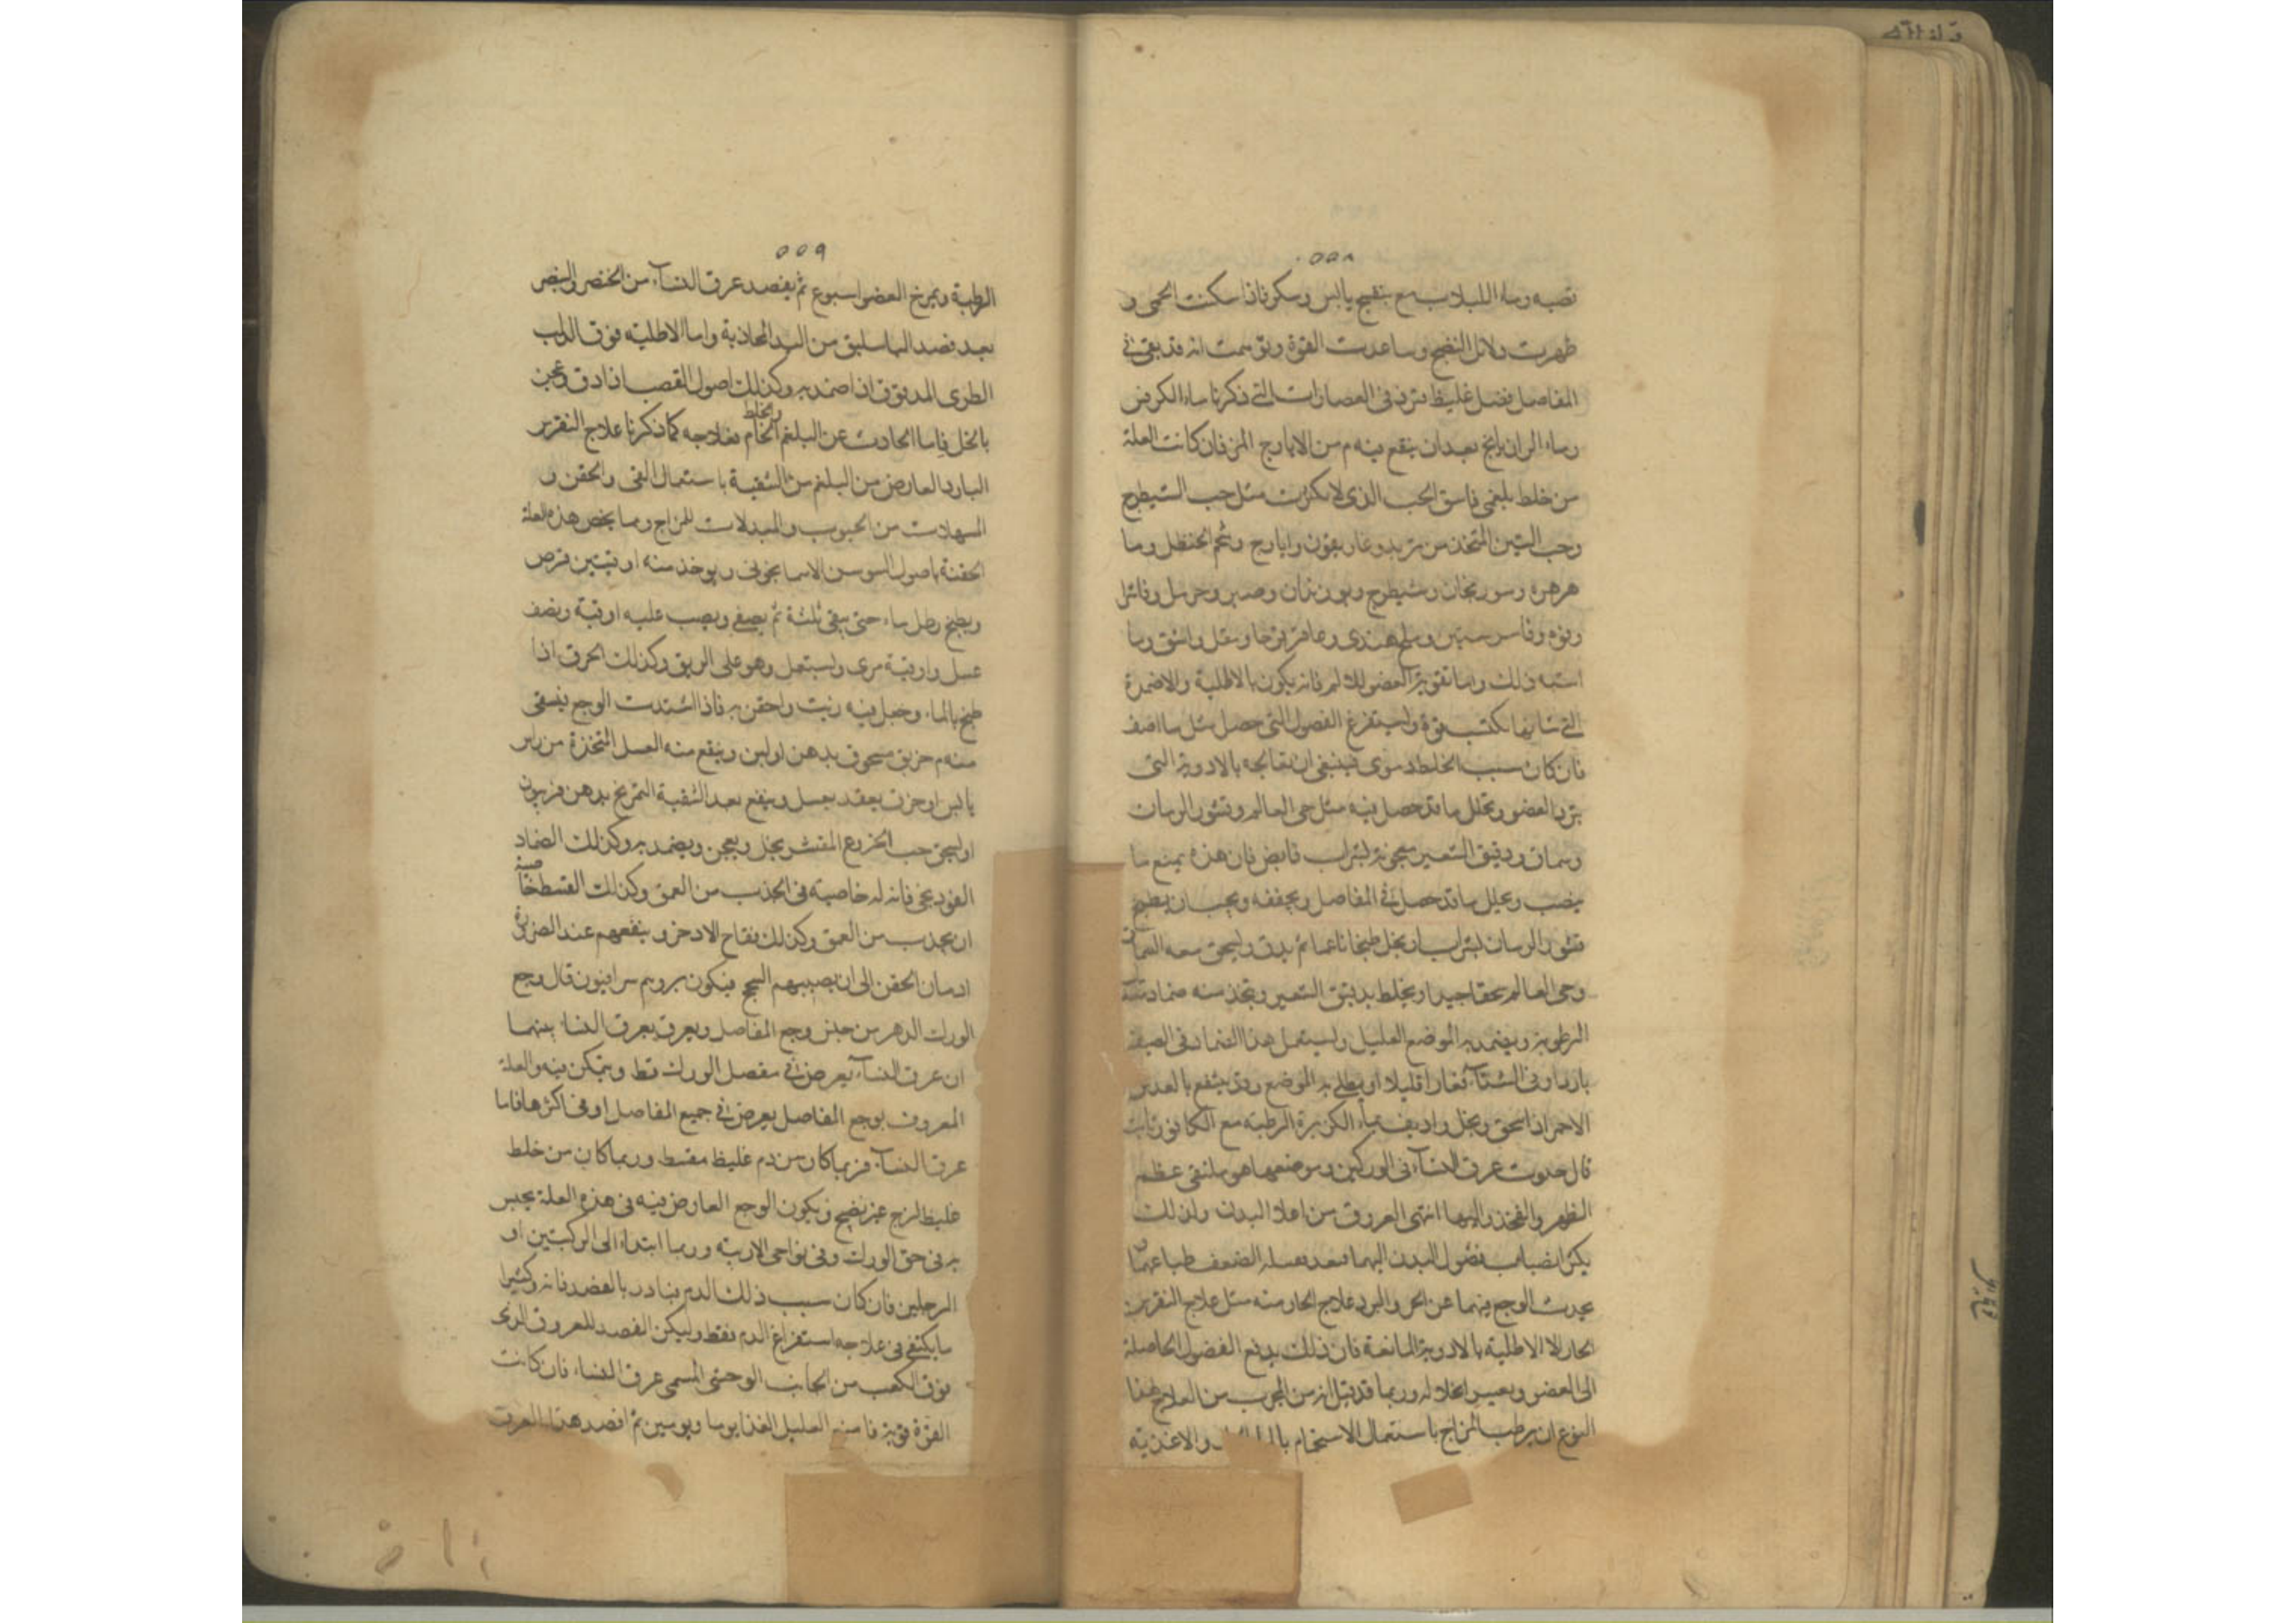 ٥٥٨
قصبه وماء اللبلاب مع بنفسج يابس وسكر فاذا سكنت الحمى و
ظهرت دلائل النضج وساعدت القوة وتوسمت انه قد بقى فى
المفاصل فضل غليظ فزد فى العصارات التى ذكرنا ماء الكرفس
وماء الرازيانج بعد ان ينقع فيه م من الايارج المر فان كانت العلة
من خلط بلغمى فاسق الحب الذى لا يكرب مثل حب الشيطرج
وحب المتخذ من تربد وغاريقون وايارج وشحم الحنظل وما
هرهره وسورنجان وشيطرج وبوزيدان وصبر وحرمل
وفوه وملح هندى وعاقرقرحا ومقل واشق وما
اشبه ذلك واما تقوية العضو الالم فانه يكون بالاطلية والاضمدة
التى شانها تكتسب قوة وليستفرغ الفضول التى حصل مثل ما اصف
فان كان سبب الخلط دموى فينبغى ان يعالجه بالادوية التى
تبرد العضو وتحلل ما قد حصل فيه مثل حى العالم وقشور الرمان
وسماق ودقيق الشعير معجونة بشراب قابض فان هذه يمنع ما
ينصب ويحلل ما قد حصل فى المفاصل ويجففه ويجب ان يطبخ
قشور الرمان بشراب او بخل طبخا ناعما ثم يدق ويسحق معه السماق
وحى العالم سحقا جيدا ويخلط بدقيق الشعير ويتخذ منه ضماد
الرطوبة ويضمد به الموضع العليل وليستعمل هذا الضماد فى الصيف
باردا وفى الشتاء قليلا او يطلى به الموضع وقد ينتفع بالعدس
الاحمر اذا سحق وبخل واديف بماء الكزبرة الرطبة مع الكافور ثابت
قال حدوث عرق النساء فى الوركين وموضعهما هو ملتقى عظم
الظهر والفخذ واليهما انتهى العروق من اعلا البدن ولذلك
يكثر انصباب فضول البدن اليهما
يحدث الوجع فيهما عن الحر والبرد علاج الحار منه مثل علاج النقرس
الحار الا الاطلية بالادوية المانعة فان ذلك يدفع الفضول الحاصلة
الى العضو ويعسر انحلاله وربما قد قيل انه من المجرب من العلاج هذا
النوع ان يرطب المزاج باستعمال الاستحمام والاغذية
٥٥٩
الرطبة ويمرخ العضو اسبوع ثم يفصد عرق النساء من الخنصر والبنصر
بعد فصد الباسليق من اليد المحاذية واما الاطلية فورق الدلب
الطرى المدقوق اذا ضمد به وكذلك اصول القصب اذا دق وعجن
بالخل فاما الحادث عن البلغم والخلط الخام فعلاجه كما ذكرنا علاج النقرس
البارد العارض من البلغم من التنقية باستعمال القى والحقن و
المسهلات من الحبوب والمبدلات للمزاج ومما يخص هذه العلة
الحقنة باصول السوسن الاسمانجونى ويوخذ منه اوقيتين قرص
ويطبخ رطل ماء حتى يبقى ثلثه ثم يصفى ويصب عليه اوقية ونصف
عسل واوقية مرى وليستعمل وهو على الريق وكذلك الحرف اذا
طبخ بالماء وجعل فيه زيت واحتقن به فاذا اشتدت الوجع فيسقى
منه م خربق مسحوق بدهن او لبن وينفع منه العسل المتخذة من
يابس او حرف يعقد بعسل وينفع بعد التنقية التمريخ بدهن فربيون
او ليسحق حب الخروع المقشر بخل ويعجن ويضمد به وكذلك الضماد
الفودنجى فانه له خاصية فى الجذب من العمق وكذلك القسط خاصيته
ان يجذب من العمق وكذلك فقاح الاذخر وينفعهم عند الضرورة
ادمان الحقن الى ان يصيبهم السحج فيكون بروهم سرافيون قال وجع
الورك الدهر من جنس وجع المفاصل ويعرف بعرق النساء بينهما
ان عرق النساء يعرض فى مفصل الورك فقط ويتمكن فيه والعلة
المعروف بوجع المفاصل يعرض فى جميع المفاصل او فى اكثرها فاما
عرق النساء فربما كان من دم غليظ مفسد وربما كان من خلط
غليظ لزج غير نضيج ويكون الوجع العارض فيه فى هذه العلة يحس
به فى حق الورك وفى نواحى الاربية وربما ابتداء الى الركبتين او
الرجلين فان كان سبب ذلك الدم فبادر بالفصد فانه وكثيرا
ما يكتفى فى علاجه استفراغ الدم فقط وليكن الفصد للعروق الذى
فوق الكعب من الجانب الوحشى المسمى عرق النساء فان كانت
القوة قوية فامنع العليل الغذا يوما ويومين ثم افصد هذا العرق